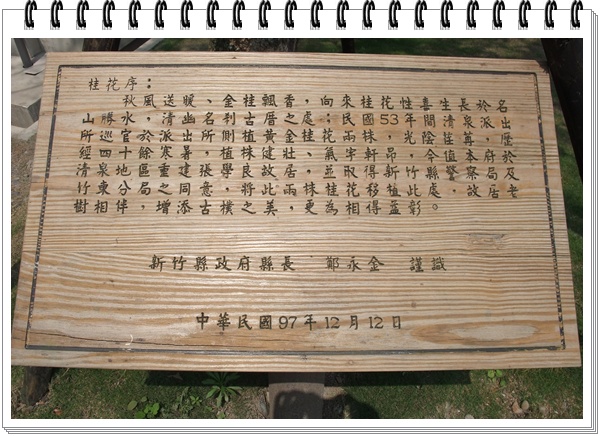 桂花序：
秋風送暖、金桂飄香，向來桂花性喜生長於名
山勝水，清幽名剎古厝之處；民國53年間清泉派出
所巡官於派出所側植黃金桂花兩株，光陰荏苒，歷
經四十餘寒暑，植株健壯、氣宇軒昂，今值本府於
清泉地區重建張學良故居，並取得竹縣警察局及
竹東分局同意將此兩株桂花移植此處，故居老
樹相伴，增添古樸之美，更為相得益彰。
新竹縣政府縣長 鄭永金 謹識
中華民國97年12月12日